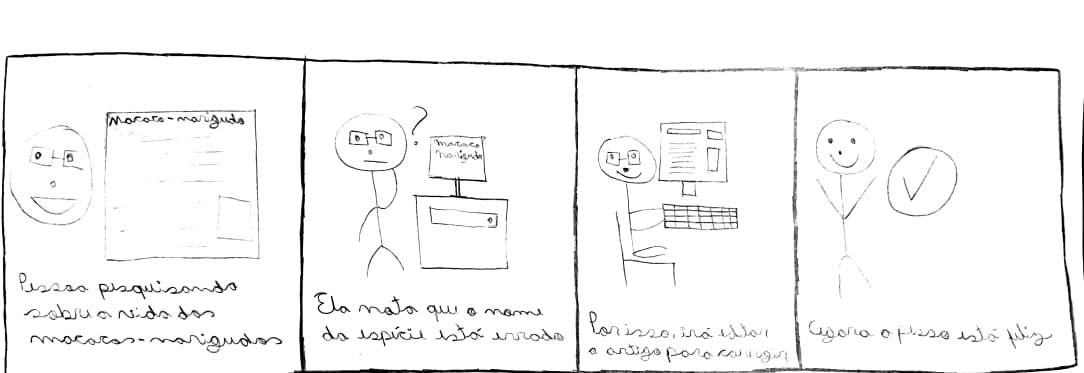 macaco-narigudo
Pessoa pesquisando
sobre a vida dos
macacos-narigudos
?
macaco
narigudo
Ela nota que o nome
da espície está errado
Por isso, irá editar
o artigo para corrigir
Agora a pesso está feliz